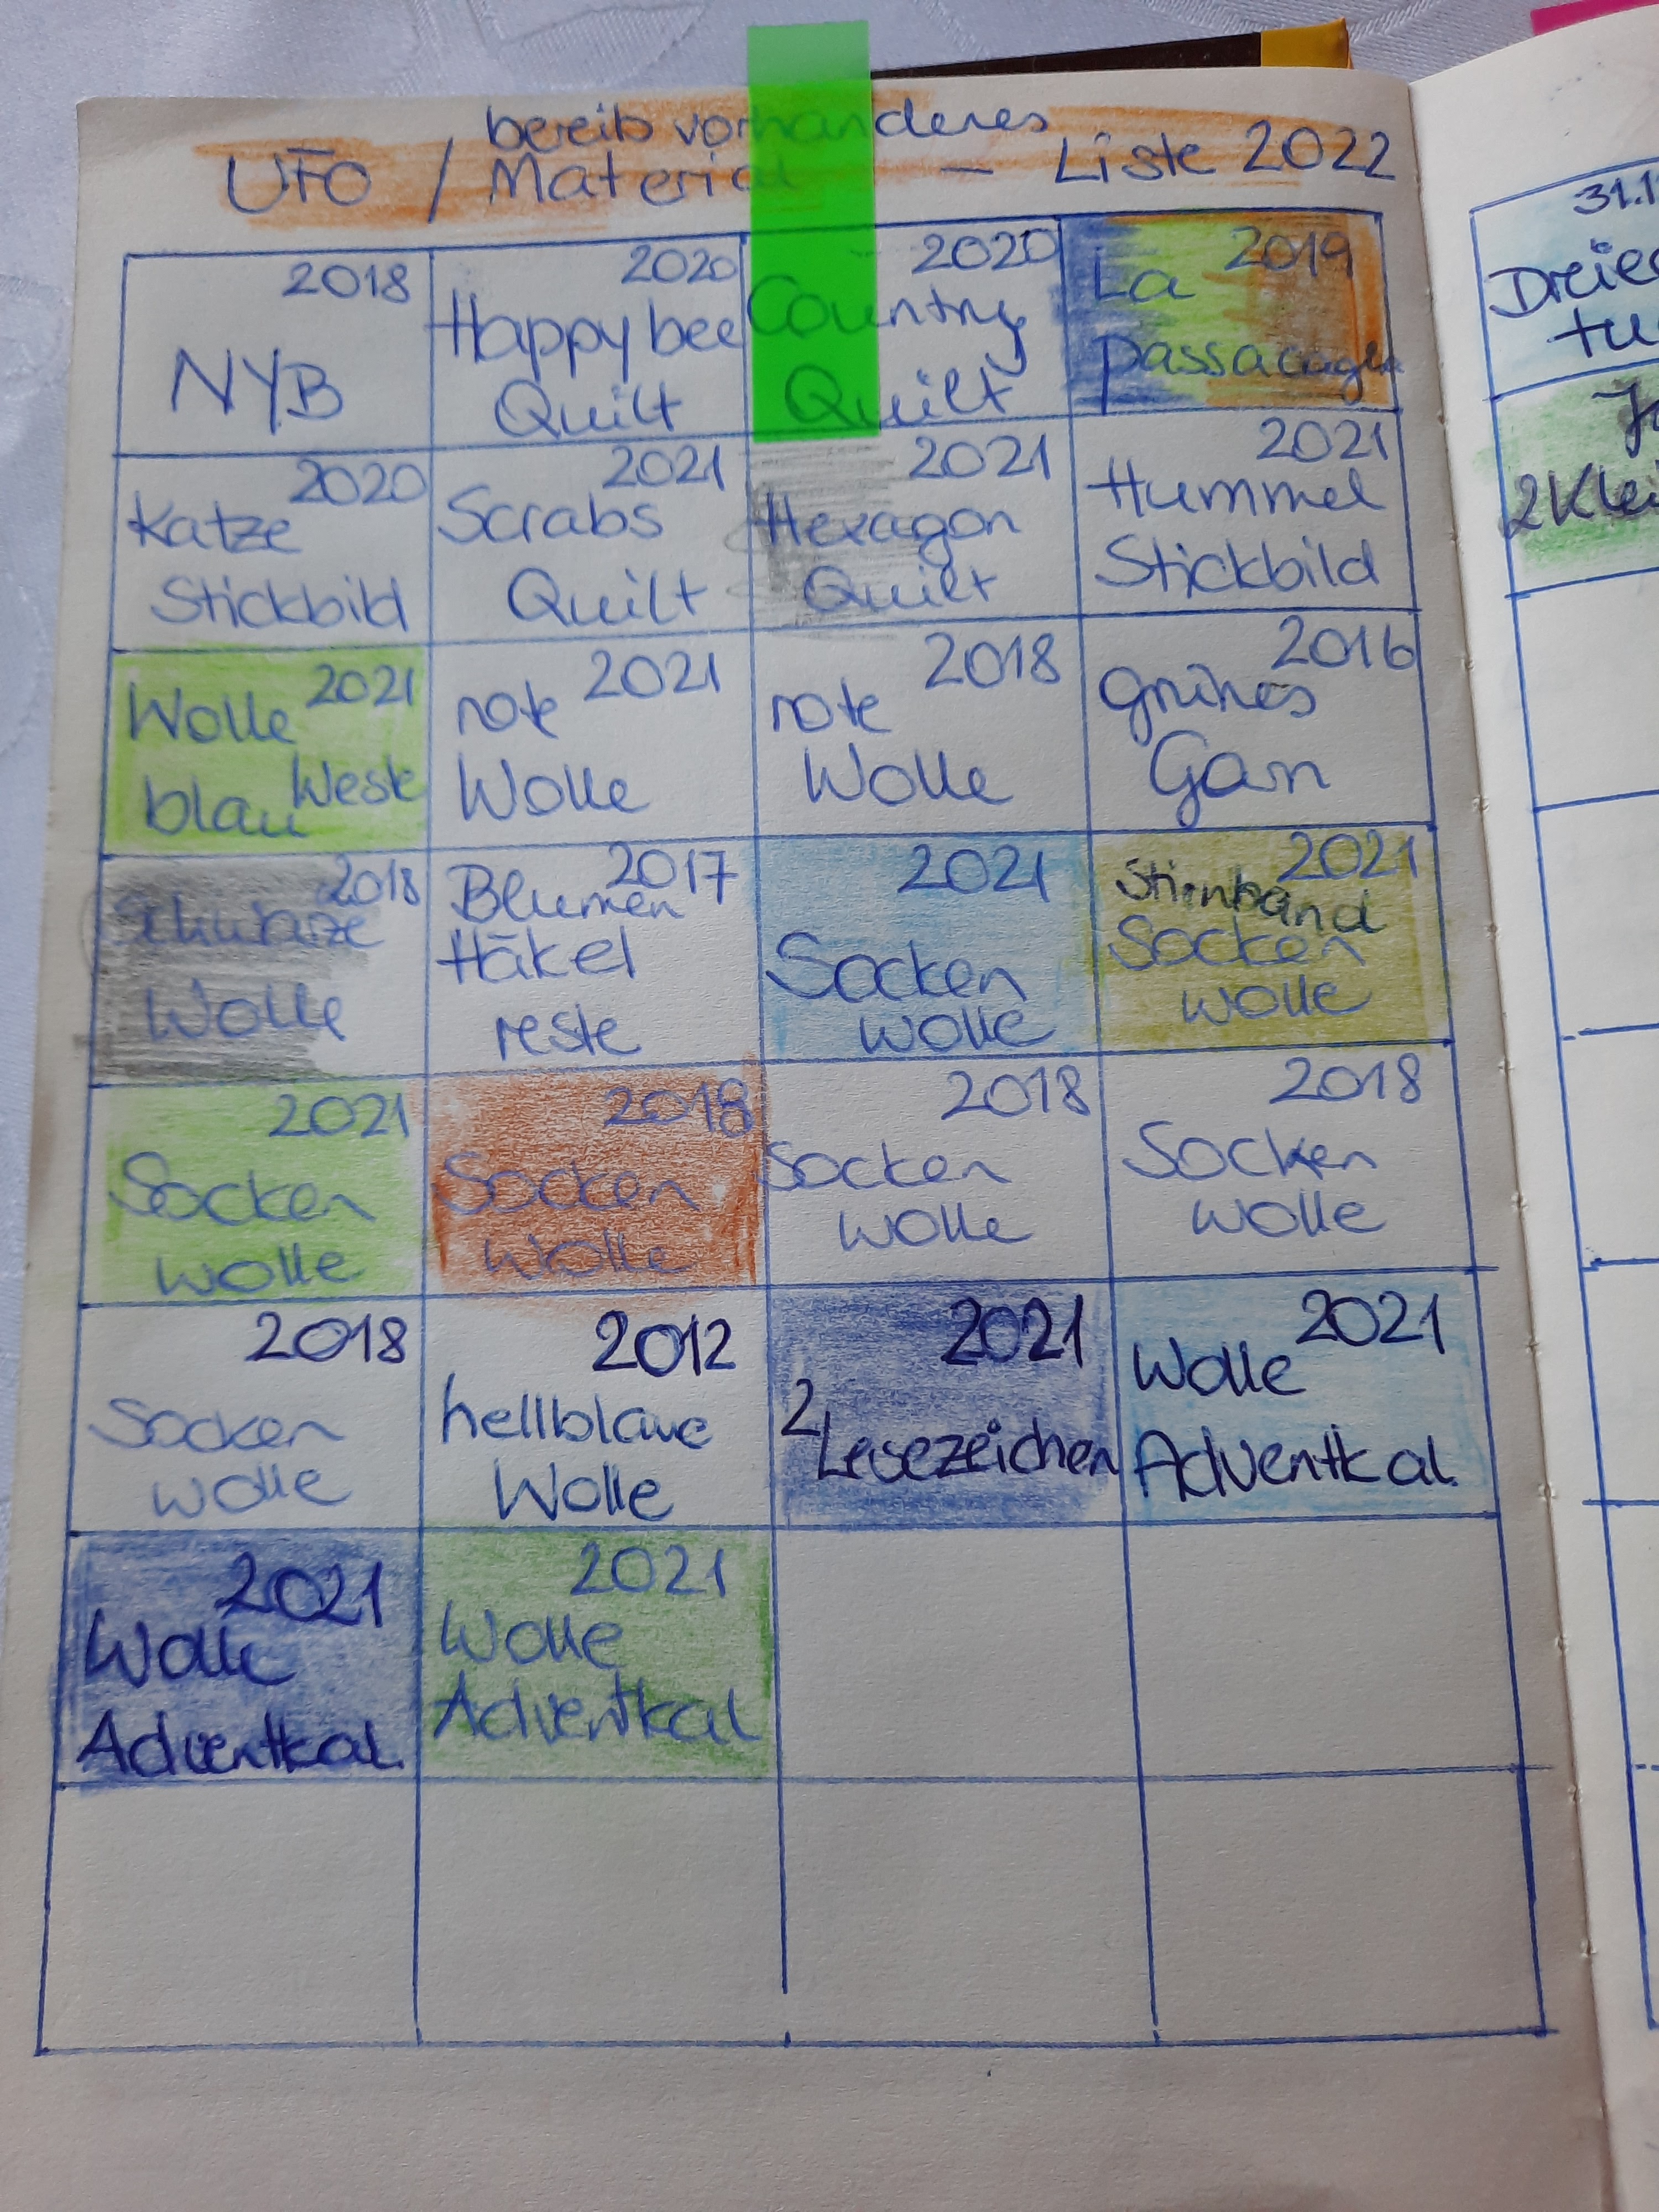 bereits vorhandenes
UFO / Material - Liste 2022
2018
NYB
2020
Happy bee
Quilt
2020
Country
Quilt
2019
La
passacaglia
2020
Katze
Stickbild
2021
Scrabs
Quilt
2021
Hexagon
Quilt
2021
Hummel
Stickbild
2021
Wolle
Weste
blau
2021
rote
Wolle
2018
rote
Wolle
2016
grünes
Garn
2018
Schwarze
Wolle
2017
Blumen
Häkel
reste
2021
Socken
wolle
2021
Stirnband
Socken
wolle
2021
Socken
wolle
2018
Socken
wolle
2018
Socken
wolle
2018
Socken
wolle
2018
Socken
wolle
2012
hellblaue
Wolle
2021
2
Lesezeichen
2021
Wolle
Adventkal.
2021
Wolle
Adventkal.
2021
Wolle
Adventkal
31.1
Dreiec
tu
2 Klei